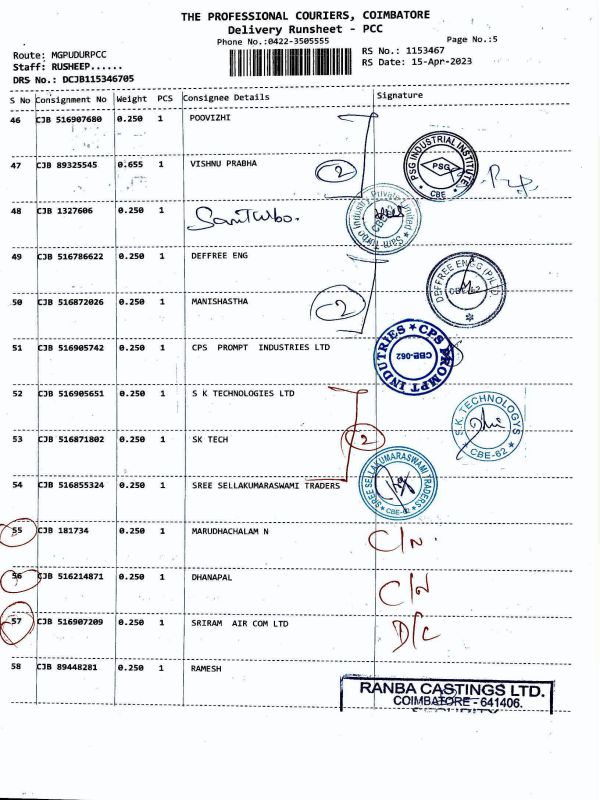 THE PROFESSIONAL COURIERS, COIMBATORE
Delivery Runsheet - PCC
Phone No.:0422-3505555
Page No.:5
Route: MGPUDURPCC
RS No.: 1153467
Staff: RUSHEEP......
RS Date: 15-Apr-2023
DRS No.: DCJB115346705
S No Consignment No Weight PCS Consignee Details Signature
46 CJB 516907680 0.250 1 POOVIZHI
47 CJB 89325545 0.655 1 VISHNU PRABHA
2
PSG INDUSTRIAL INSTITUTE
PSG
CBE
48 CJB 1327606 0.250 1 Sam Turbo.
Sam Turbo Industry Private Limited
CBE
49 CJB 516786622 0.250 1 DEFFREE ENG
DEFFREE ENGG (P) LTD
CBE-62
50 CJB 516872026 0.250 1 MANISHASTHA
2
51 CJB 516905742 0.250 1 CPS PROMPT INDUSTRIES LTD
CPS PROMPT INDUTRIES
CBE-062
52 CJB 516905651 0.250 1 S K TECHNOLOGIES LTD
S.K. TECHNOLOGYS
CBE-62
53 CJB 516871802 0.250 1 SK TECH
2
54 CJB 516855324 0.250 1 SREE SELLAKUMARASWAMI TRADERS
SREE SELLAKUMARASWAMI TRADERS
CBE-62
55 CJB 181734 0.250 1 MARUDHACHALAM N
C/N.
56 CJB 516214871 0.250 1 DHANAPAL
C/N
57 CJB 516907209 0.250 1 SRIRAM AIR COM LTD
D/C
58 CJB 89448281 0.250 1 RAMESH
RANBA CASTINGS LTD.
COIMBATORE - 641406.
SECURITY